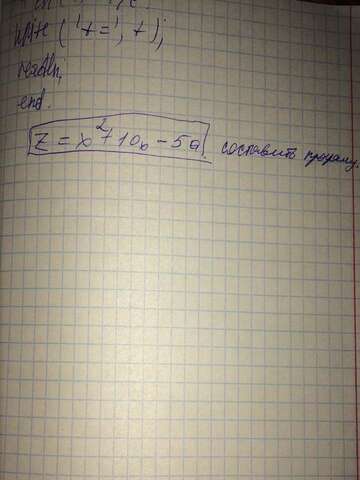 write ('t=', t);
readln;
end.
z = x² + 10x - 5a. составить программу.